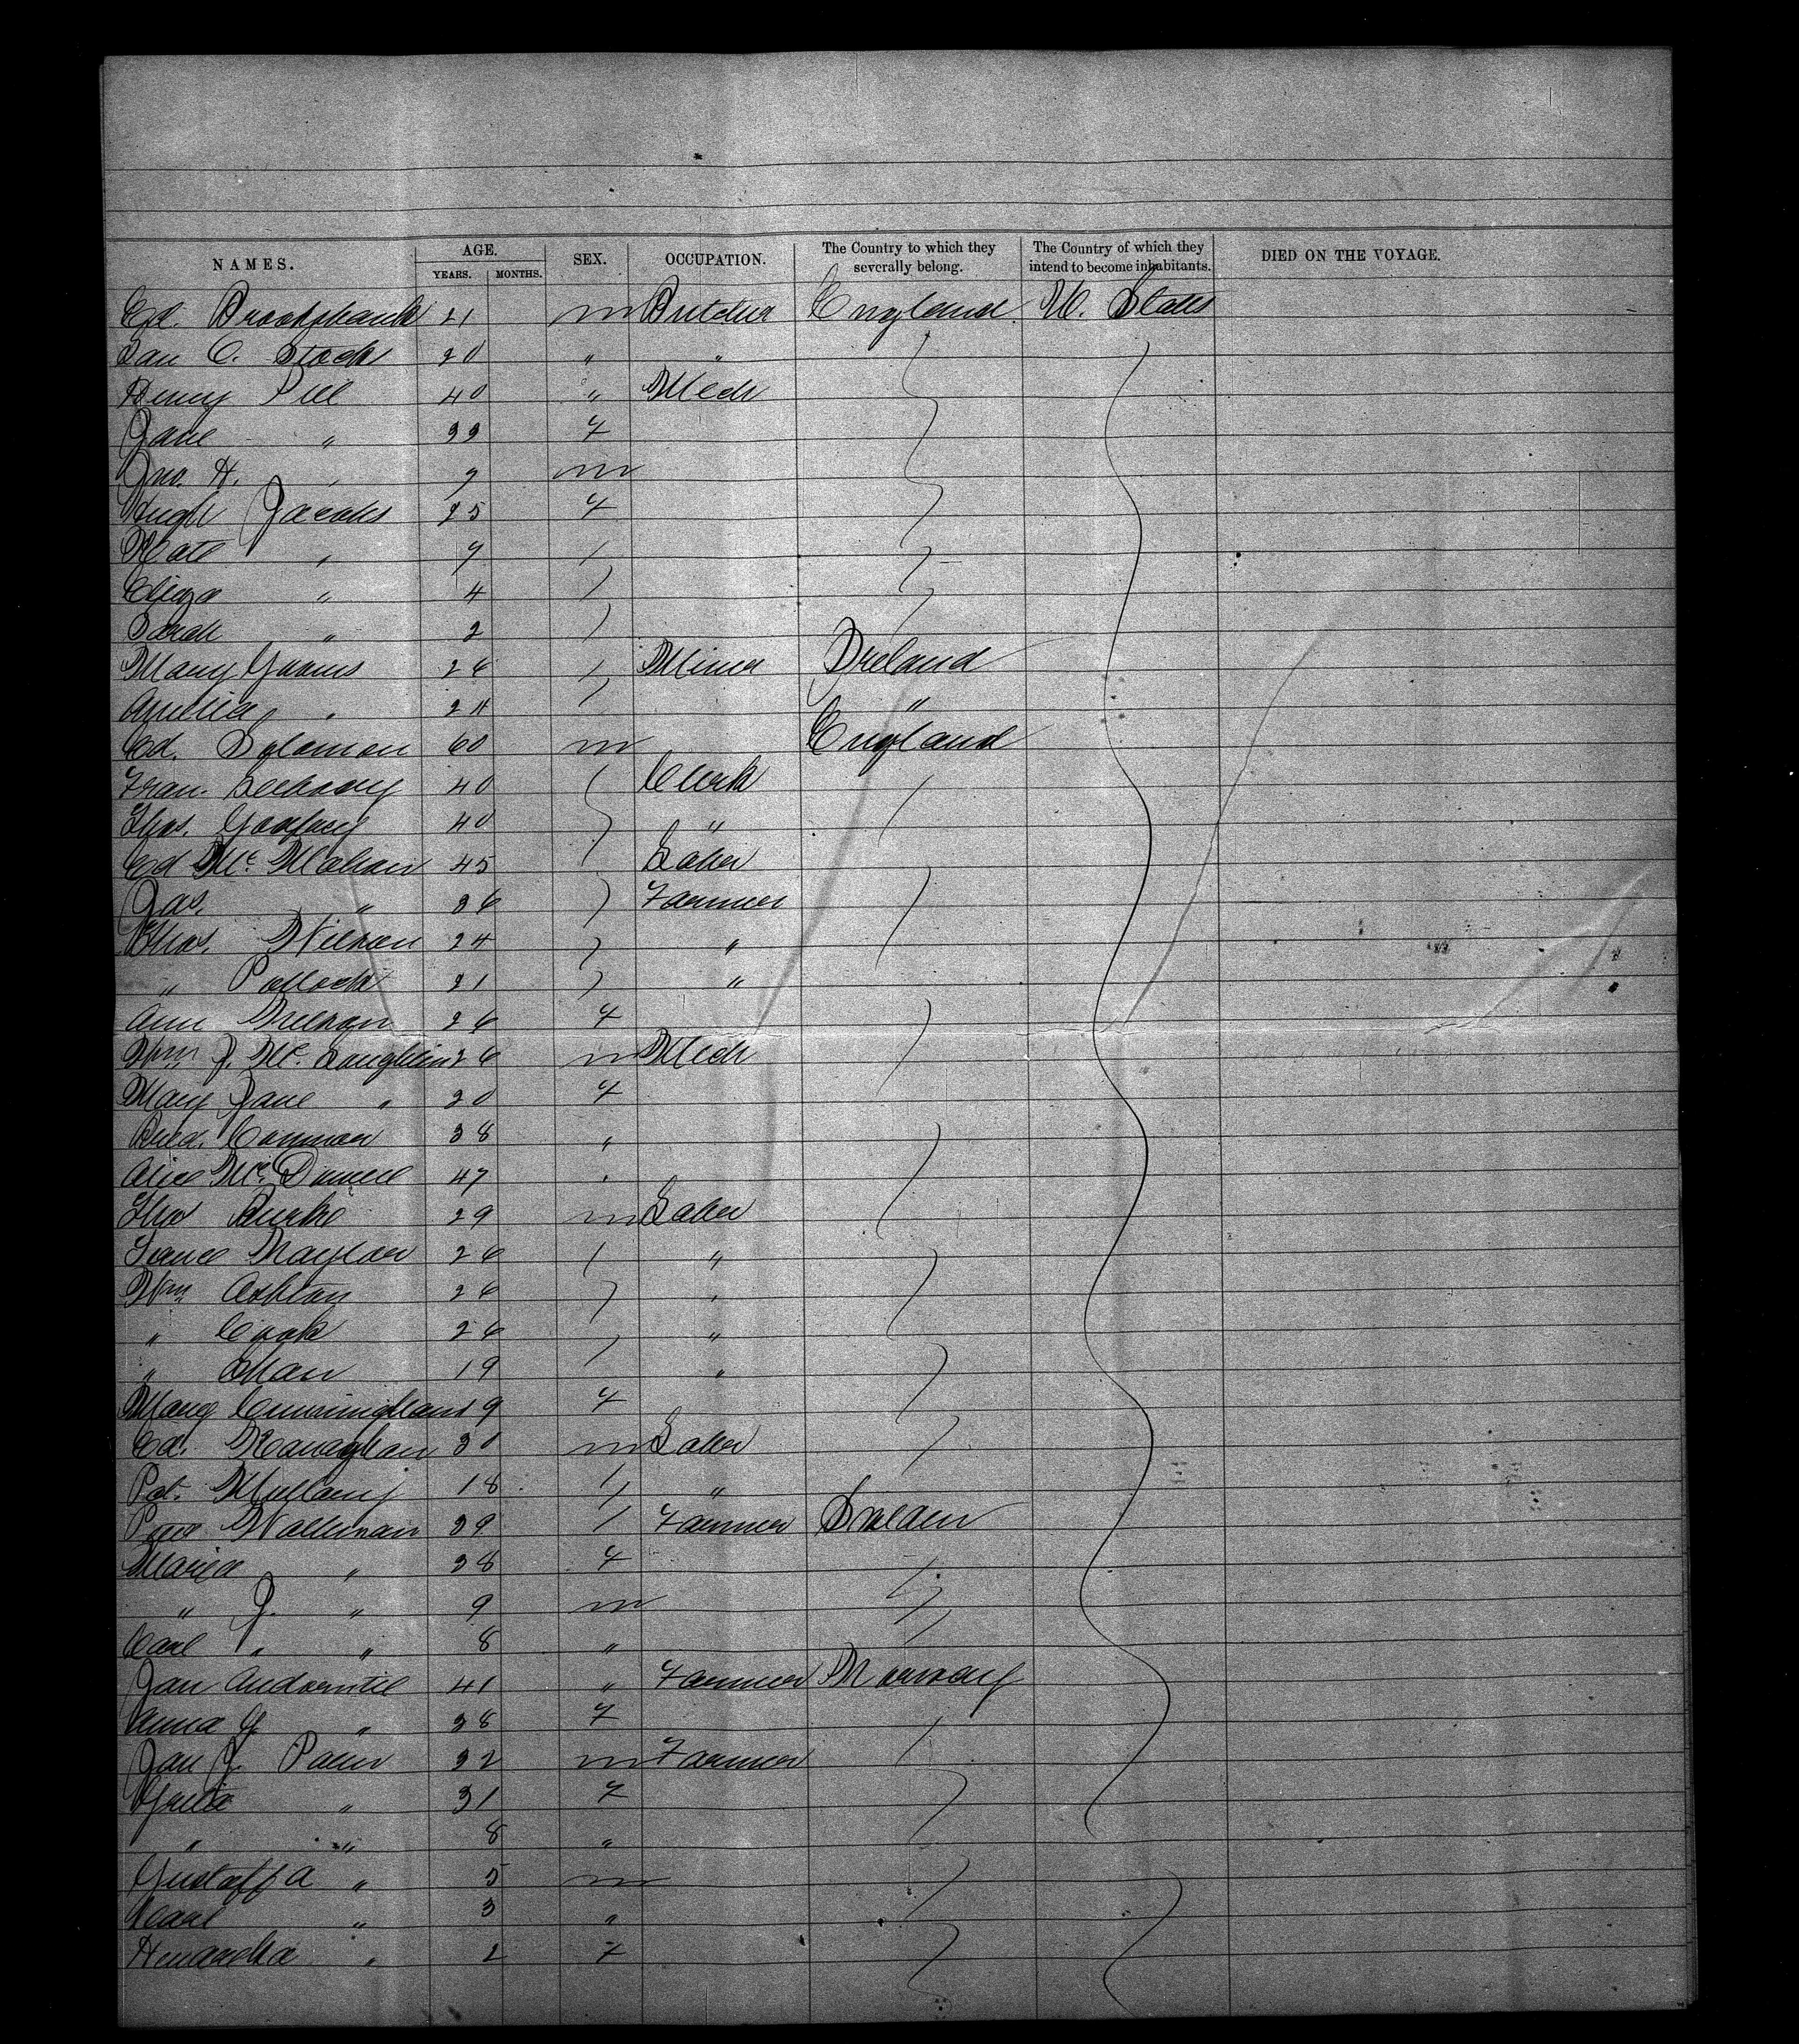 NAMES. AGE. YEARS. MONTHS. SEX. OCCUPATION. The Country to which they severally belong. The Country of which they intend to become inhabitants. DIED ON THE VOYAGE.
Ed. Brooksbank 21 m Butcher England U. States
C. Stock 20 " "
Henry Pill 40 " Mech
Jane " 33 f
Jno. H. " 9 m
Hugh Jacobs 25 f
Kate " 7
Eliza " 4
Sarah " 2
Mary 26 Miner Ireland
Amelia " 24 "
Ed. Solomon 60 m England
Fran. 40 Clerk
Thos. Godfrey 40 "
Ed Mc. Mahan 45 Labor
Jas. " 36 Farmer
Chas. Wilson 24 "
" Pollock 21 "
Ann 26 f
Wm J. Mc. Laughlin 26 m Mech
Mary Jane " 20 f
Brid. Connor 38 "
Alice Mc. Donnell 47 "
Thos Burke 29 m Labor
Naylor 26 "
Wm Ashton 26 "
" Cook 26 "
" Shaw 19 "
Mary Cunningham 19 f
Ed. Kanaghan 30 m Labor
Pat. Mullany 18 "
Wallman 39 Farmer Sweden
Maria " 38 f
" J. " 9 m
Carl " " 8 "
Jan 41 " Farmer Norway
Anna G. " 38 f
Jan J. Palm 32 m Farmer
" 31 f
" " 8 "
Gustaff A " 5 m
Carl " 3 "
" 2 f